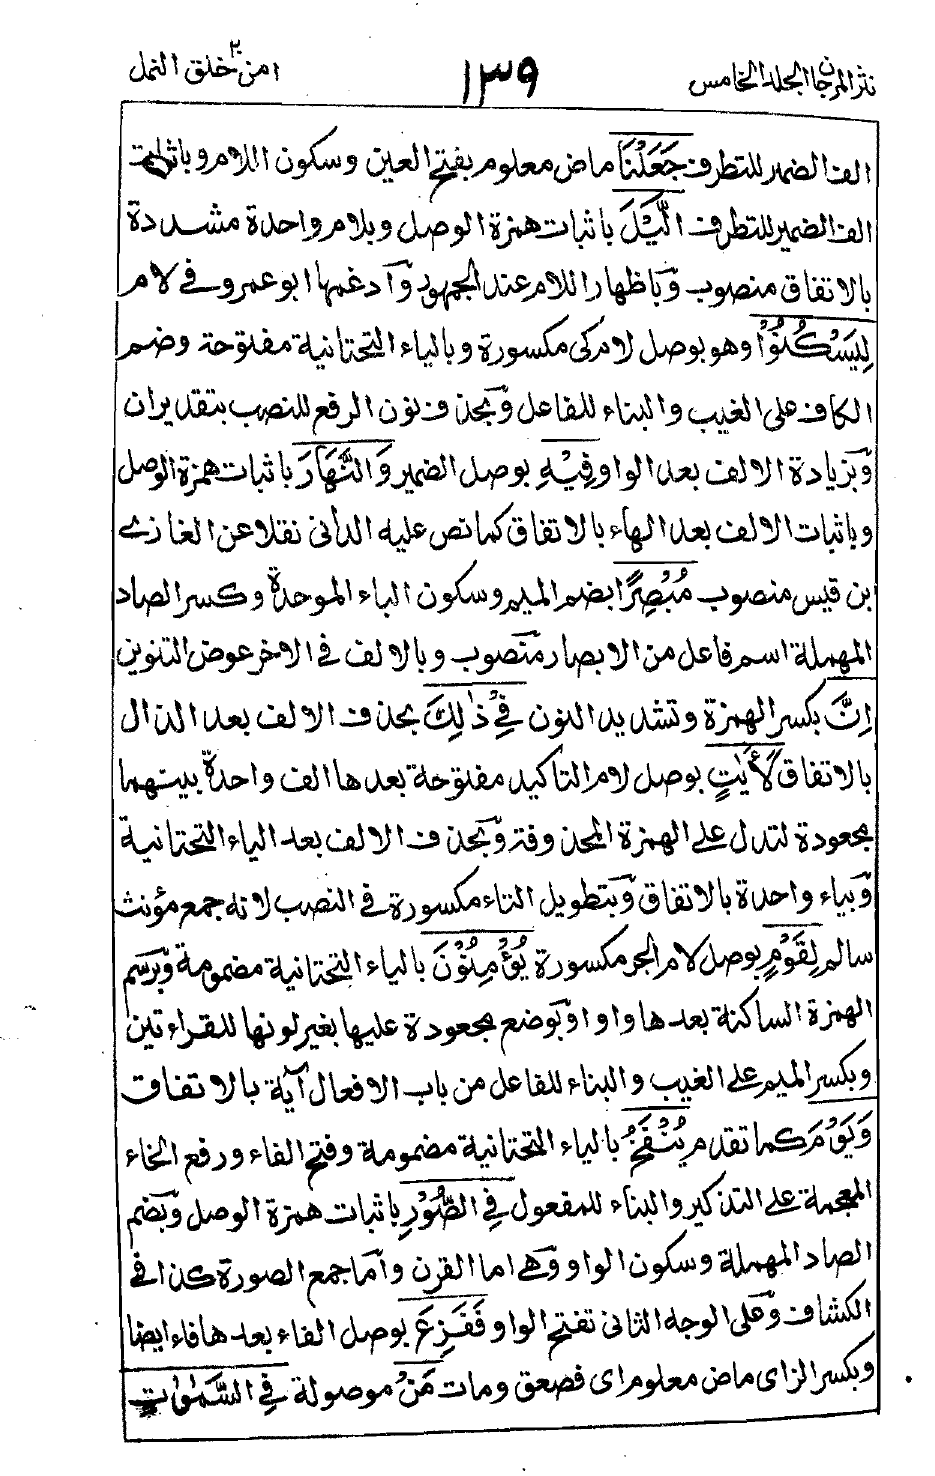 نثر المرجان المجلد الخامس ١٣٩ امن خلق ٢٠ النمل
الف الضمير للتطرف جَعَلْنَا ماض معلوم بفتح العين وسكون اللام وباثبات
الف الضمير للتطرف الَّيْلَ باثبات همزة الوصل وبلام واحدة مشددة
بالاتفاق منصوب وباظهار اللام عند الجمهور وآدغمها ابو عمرو في لام
لِيَسْكُنُوْا وهو بوصل لام كى مكسورة وبالياء التحتانية مفتوحة وضم
الكاف على الغيب والبناء للفاعل وبحذف نون الرفع للنصب بتقدير ان
وبزيادة الالف بعد الواو فِيْهِ بوصل الضمير وَالنَّهَارَ باثبات همزة الوصل
وباثبات الالف بعد الهاء بالاتفاق كما نص عليه الدانى نقلا عن الغازے
ابن قيس منصوب مُبْصِرًا بضم الميم وسكون الباء الموحدة وكسر الصاد
المهملة اسم فاعل من الابصار منصوب وبالالف في الاخر عوض التنوين
اِنَّ بكسر الهمزة وتشديد النون فِيْ ذٰلِكَ بحذف الالف بعد الذال
بالاتفاق لَاٰيٰتٍ بوصل لام التاكيد مفتوحة بعدها الف واحدة بينهما
مجعودة لتدل على الهمزة المحذوفة وبحذف الالف بعد الياء التحتانية
وبياء واحدة بالاتفاق وبتطويل التاء مكسورة في النصب لانه جمع مؤنث
سالم لِقَوْمٍ بوصل لام الجر مكسورة يُؤْمِنُوْنَ بالياء التحتانية مضمومة وبرسم
الهمزة الساكنة بعدها واوا وبوضع مجعودة عليها بغير لونها للقراءتين
وبكسر الميم على الغيب والبناء للفاعل من باب الافعال آية بالاتفاق
وَيَوْمَ كما تقدم يُنْفَخُ بالياء التحتانية مضمومة وفتح الفاء ورفع الخاء
المعجمة على التذكير والبناء للمفعول فِي الصُّوْرِ باثبات همزة الوصل وبضم
الصاد المهملة وسكون الواو وهي اما القرن واما جمع الصورة كذا في
الكشاف وعلى الوجه الثانى تفتح الواو فَفَزِعَ بوصل الفاء بعدها فاء ايضا
وبكسر الزاى ماض معلوم اى فصعق ومات مَنْ موصولة فِي السَّمٰوٰتِ